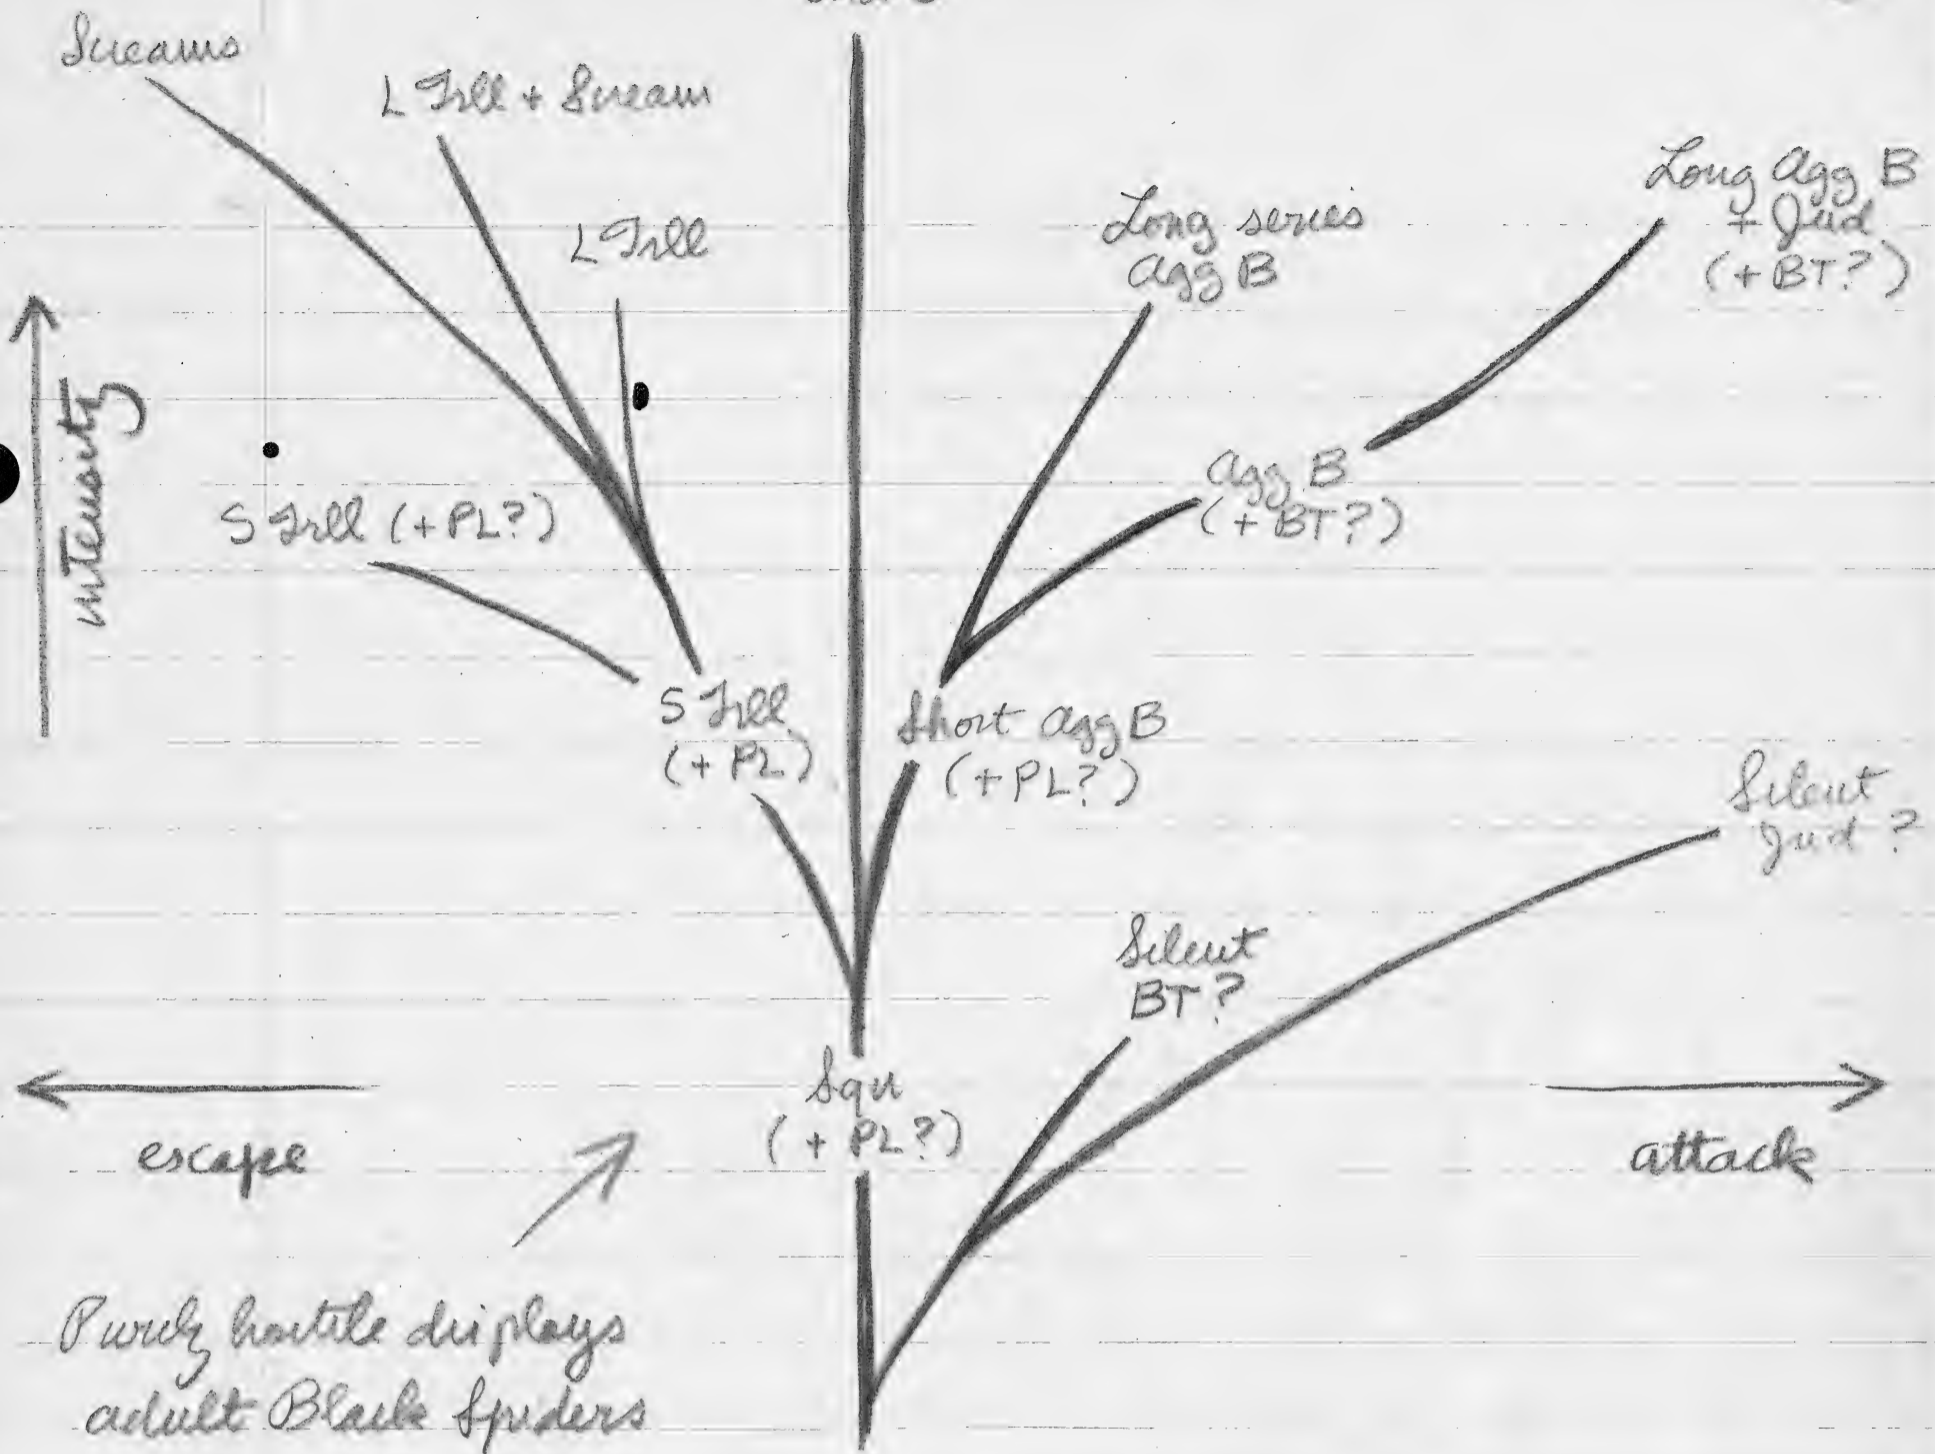 Screams
L Trll + Scream
L Trll
Long series
Agg B
Long Agg B
+ Jud
(+ BT?)
intensity
S Trll (+ PL?)
Agg B
(+ BT?)
S Trll
(+ PL)
Short Agg B
(+ PL?)
Silent
Jud ?
Silent
BT ?
escape
Squ
(+ PL?)
attack
Purely hostile displays
adult Black Spiders